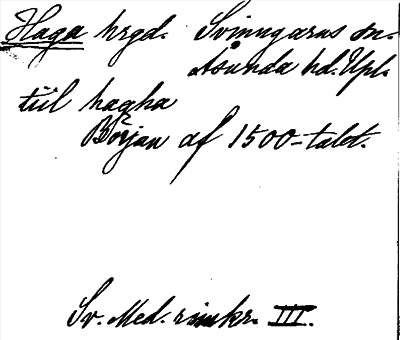 Haga hrgd. Svinngarns sn.
Åsunda hd. Upl.
till hagha
Början af 1500-talet.
Sv. Med. rimkr. III.